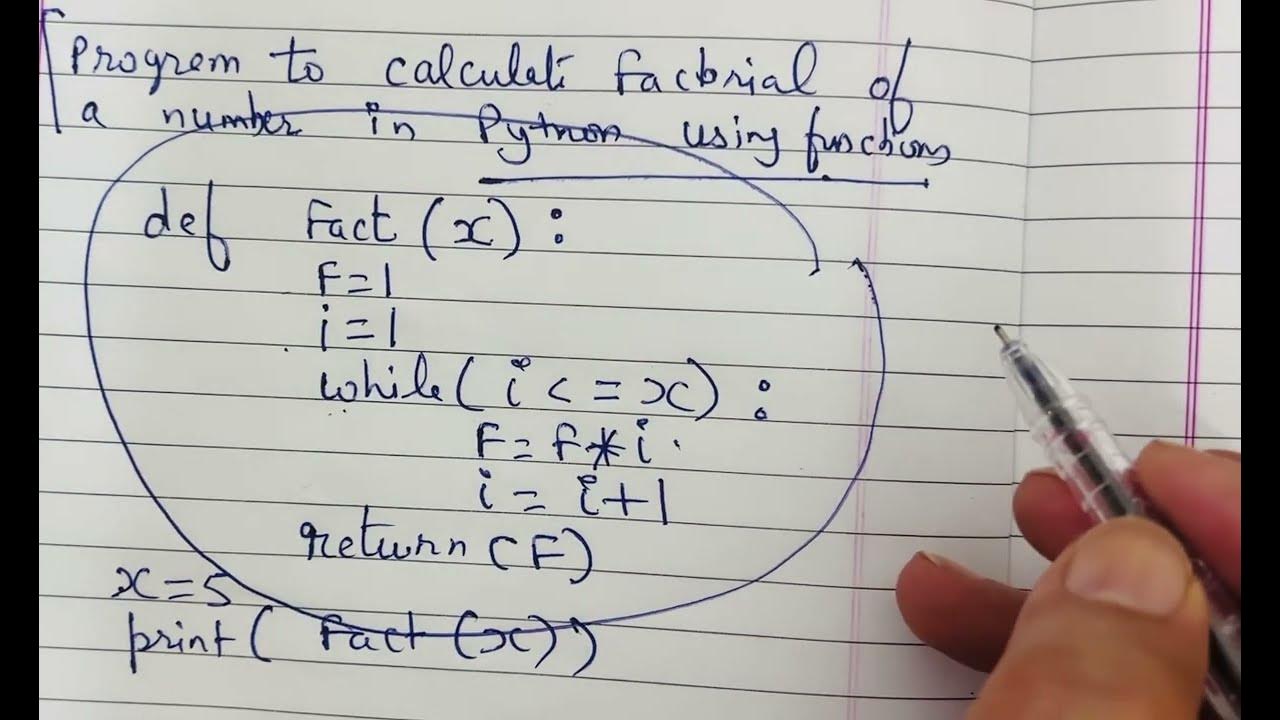 Program to calculate factorial of
a number in Python using functions
def Fact (x) :
F = 1
i = 1
while ( i < = x) :
F = F * i
i = i + 1
return (F)
x = 5
print ( Fact (x))